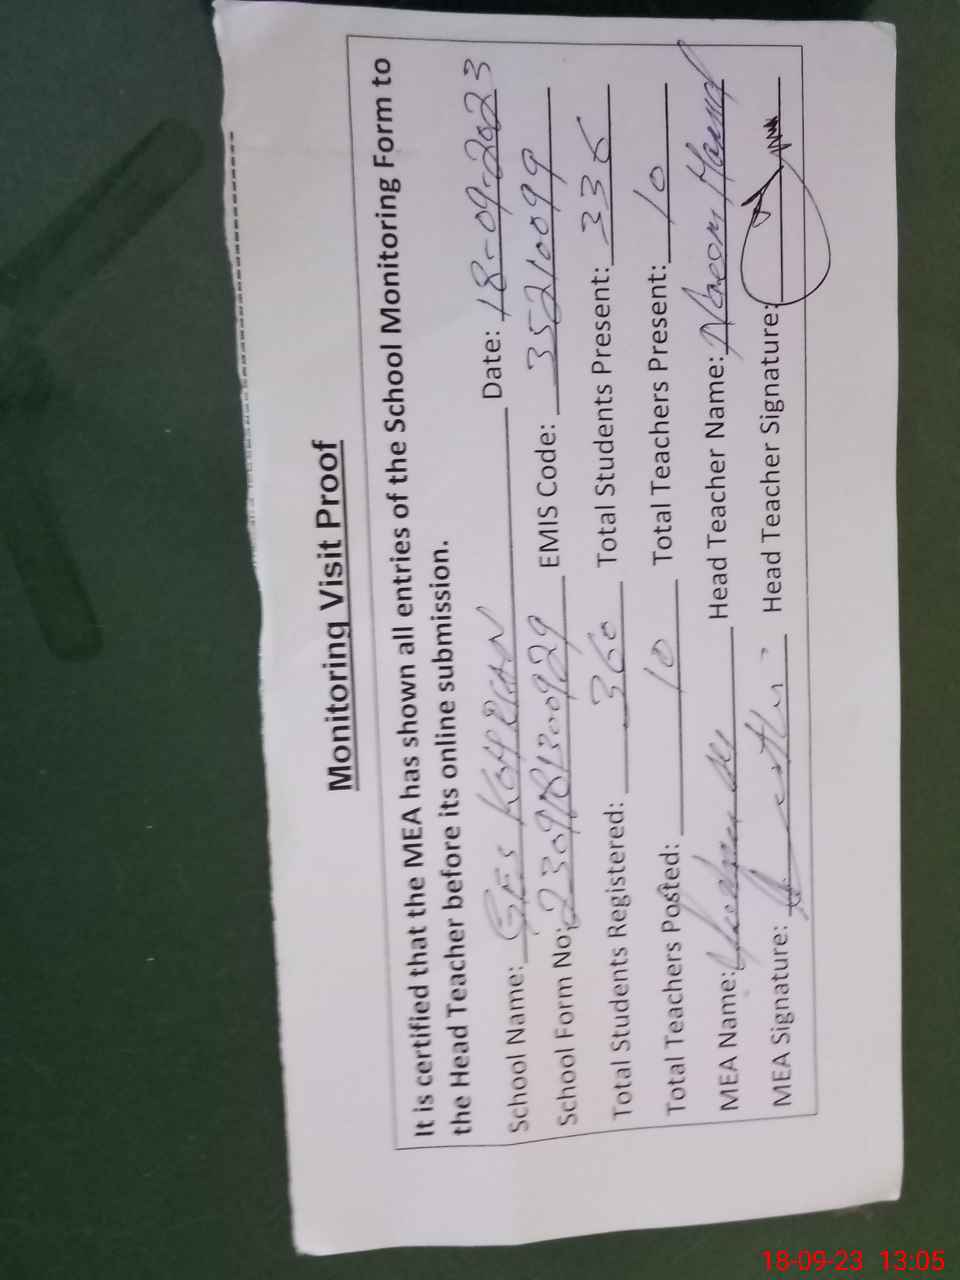 Monitoring Visit Proof
It is certified that the MEA has shown all entries of the School Monitoring Form to
the Head Teacher before its online submission.
School Name: GES Date: 18-09-2023
School Form No: EMIS Code: 35210099
Total Students Registered: 360 Total Students Present: 336
Total Teachers Posted: 10 Total Teachers Present: 10
MEA Name: Head Teacher Name:
MEA Signature: Head Teacher Signature:
18-09-23 13:05